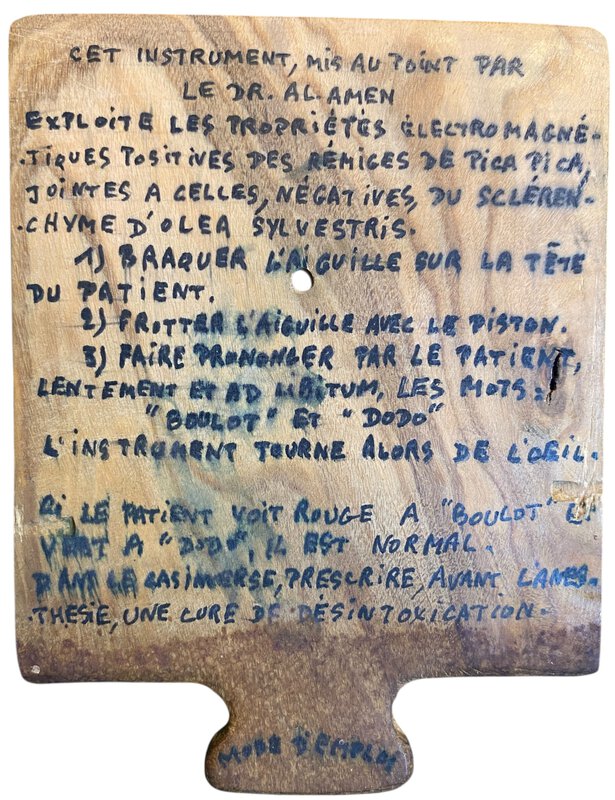 CET INSTRUMENT, MIS AU POINT PAR
LE DR. AL-AMEN
EXPLOITE LES PROPRIÉTÉS ÉLECTROMAGNÉ-
-TIQUES POSITIVES DES RÉMIGES DE PICA PICA,
JOINTES A CELLES, NÉGATIVES, DU SCLÉREN-
-CHYME D'OLEA SYLVESTRIS.
1) BRAQUER L'AIGUILLE SUR LA TÊTE
DU PATIENT.
2) FROTTER L'AIGUILLE AVEC LE PISTON.
3) FAIRE PRONONCER PAR LE PATIENT,
LENTEMENT ET AD LIBITUM, LES MOTS:
"BOULOT" ET "DODO"
L'INSTRUMENT TOURNE ALORS DE L'ŒIL.
SI LE PATIENT VOIT ROUGE A "BOULOT" ET
VERT A "DODO", IL EST NORMAL.
DANS LE CAS INVERSE, PRESCRIRE, AVANT L'ANES-
-THESIE, UNE CURE DE DÉSINTOXICATION-
MODE D'EMPLOI